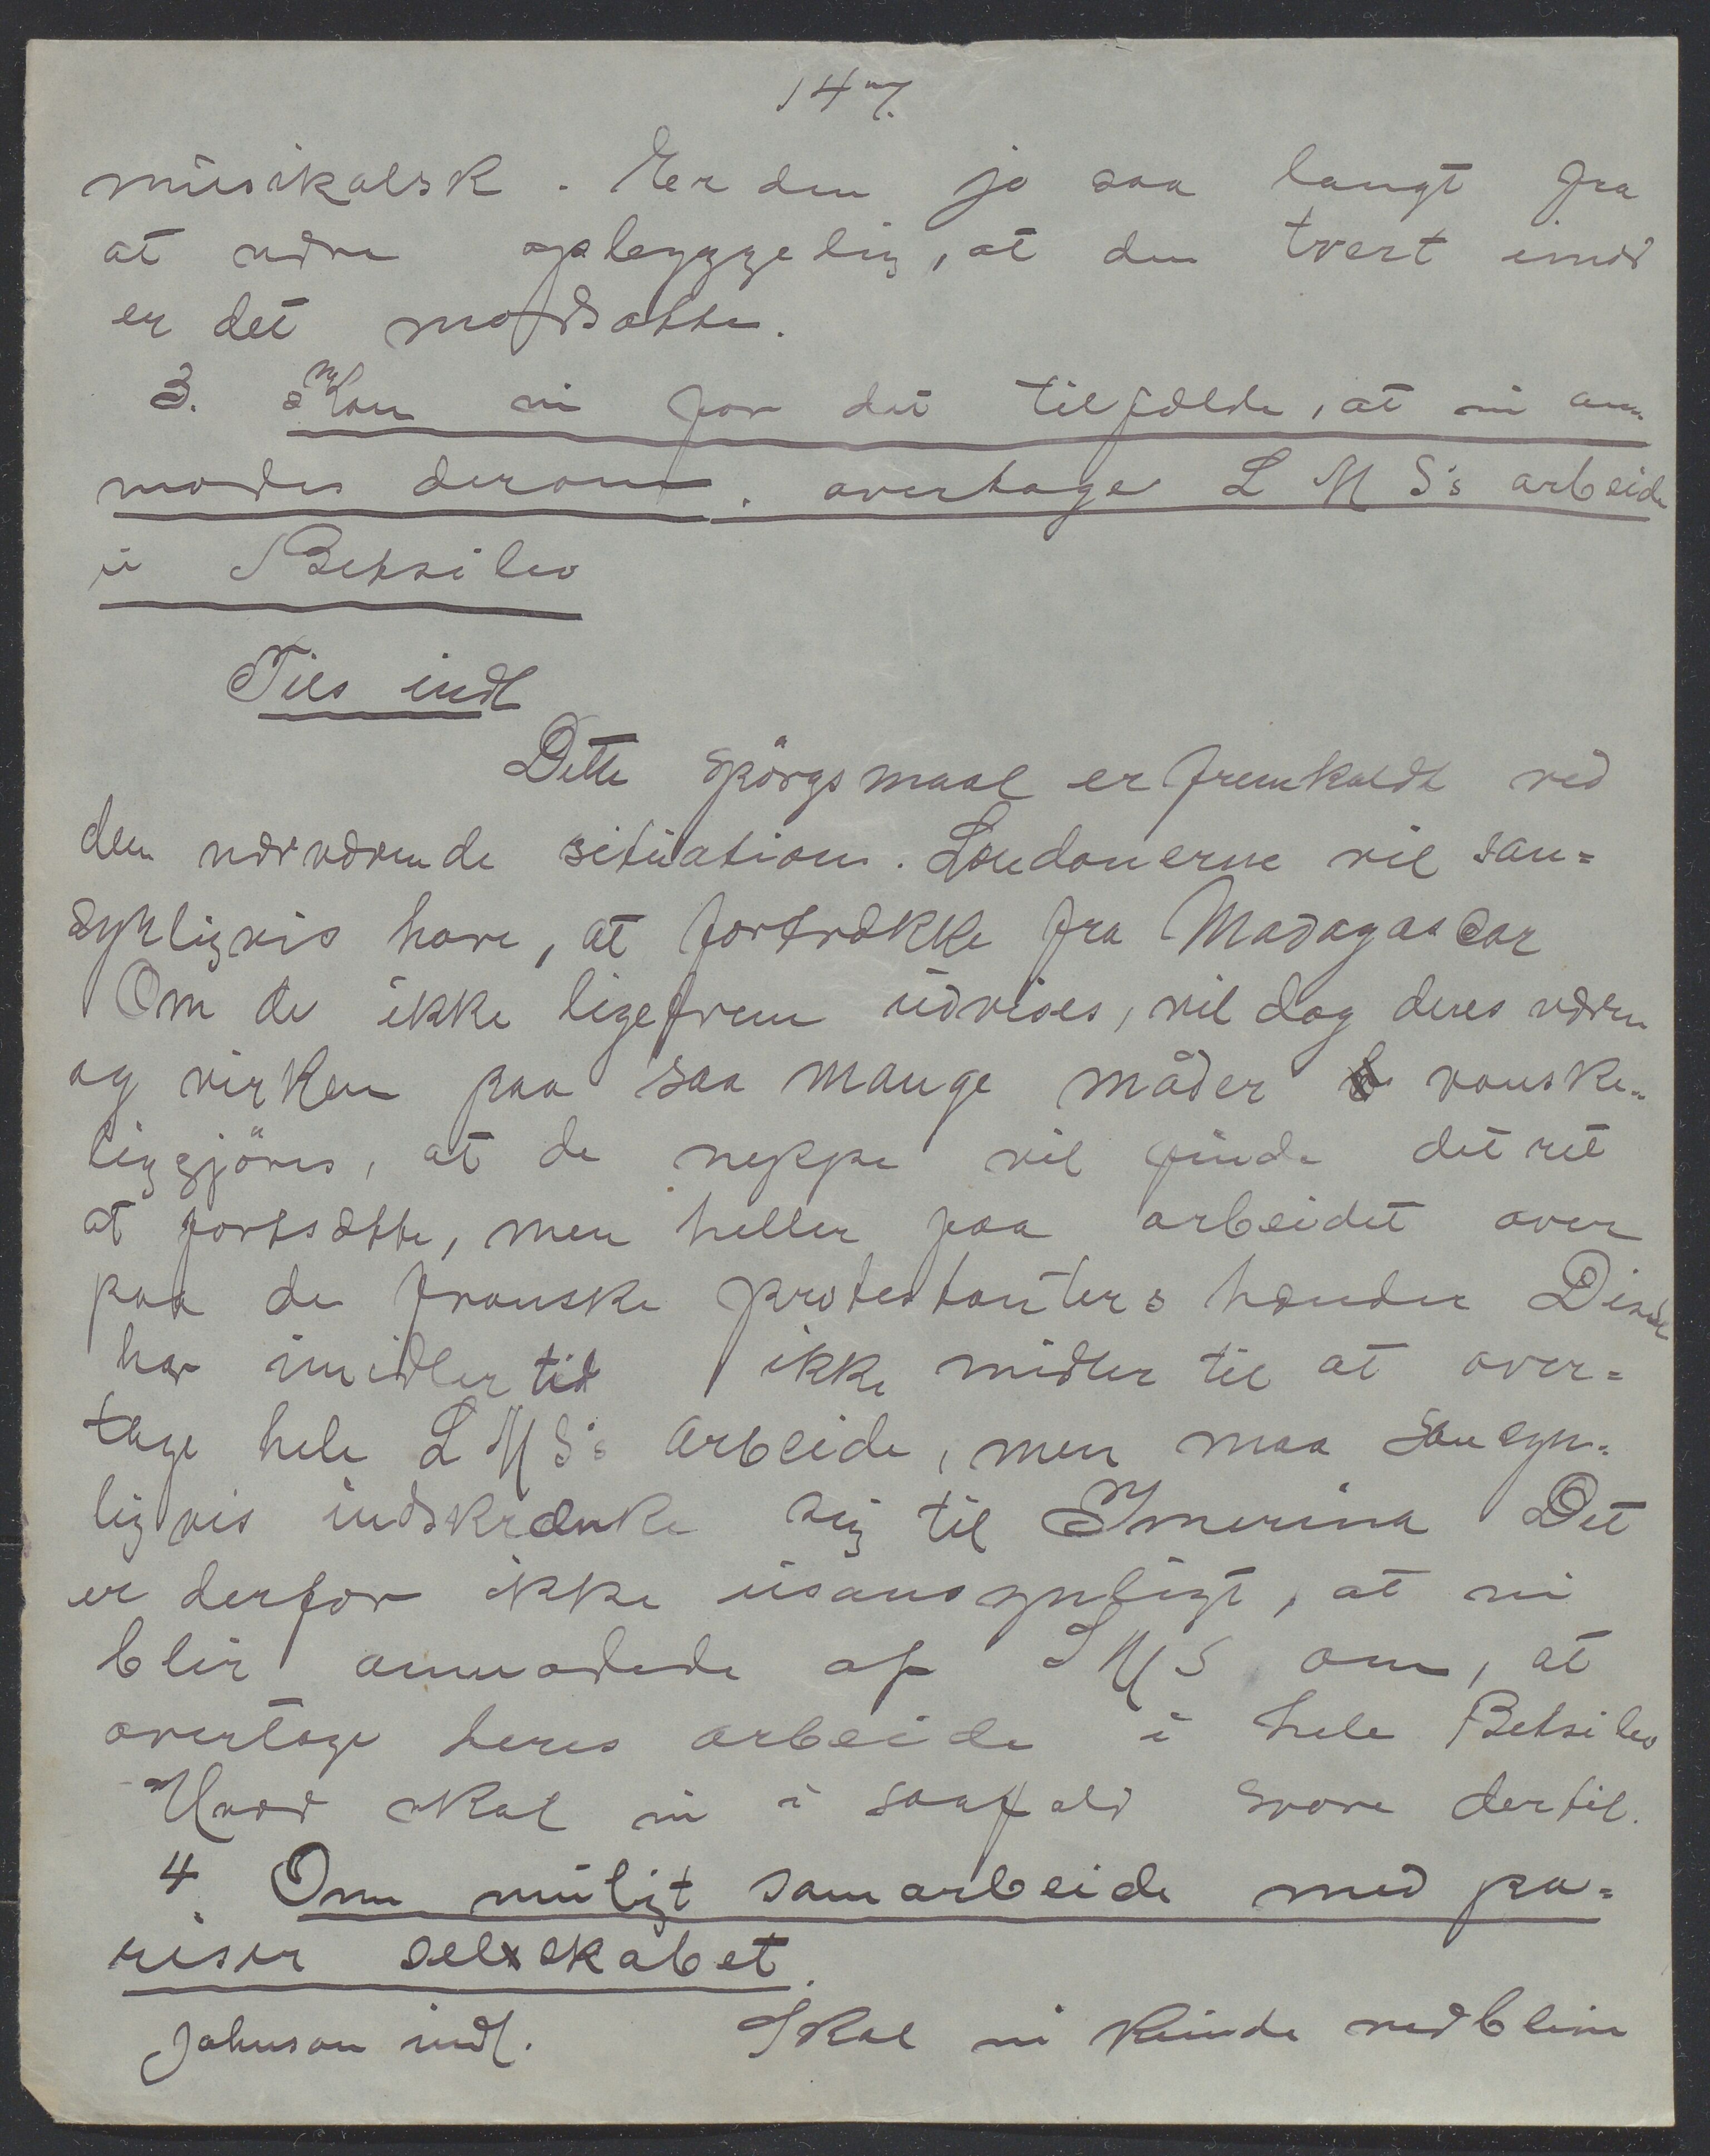 147.
musikalsk. Er den jo saa langt fra
at være opleggelig, at den tvert imod
er det modsatte.
3. Kan vi for det tilfælde, at vi an-
modes derom, overtage L M S's arbeide
i Betsileo
Tils indl
Dette spörgsmaal er fremkaldt ved
den nærværende situation. Londonerne vil san=
synligvis have, at fortrække fra Madagascar
Om de ikke ligefrem udvises, vil dog deres væren
og virken paa saa mange måder vanske-
liggjöres, at de neppe vil finde det ret
at fortsætte, men heller faa arbeidet over
paa de franske protestanters hænder Disse
har imidlertid ikke midler til at over=
tage hele L M S's arbeide, men maa sansyn-
ligvis indskrænke sig til Imerina Det
er derfor ikke usansynligt, at vi
blir anmodede af L M S om, at
overtage deres arbeide i hele Betsileo
Hvad skal vi i saafald svare dertil.
4. Om muligt samarbeide med pa=
riser selskabet.
Johnson indl. Skal vi kunde vedblive